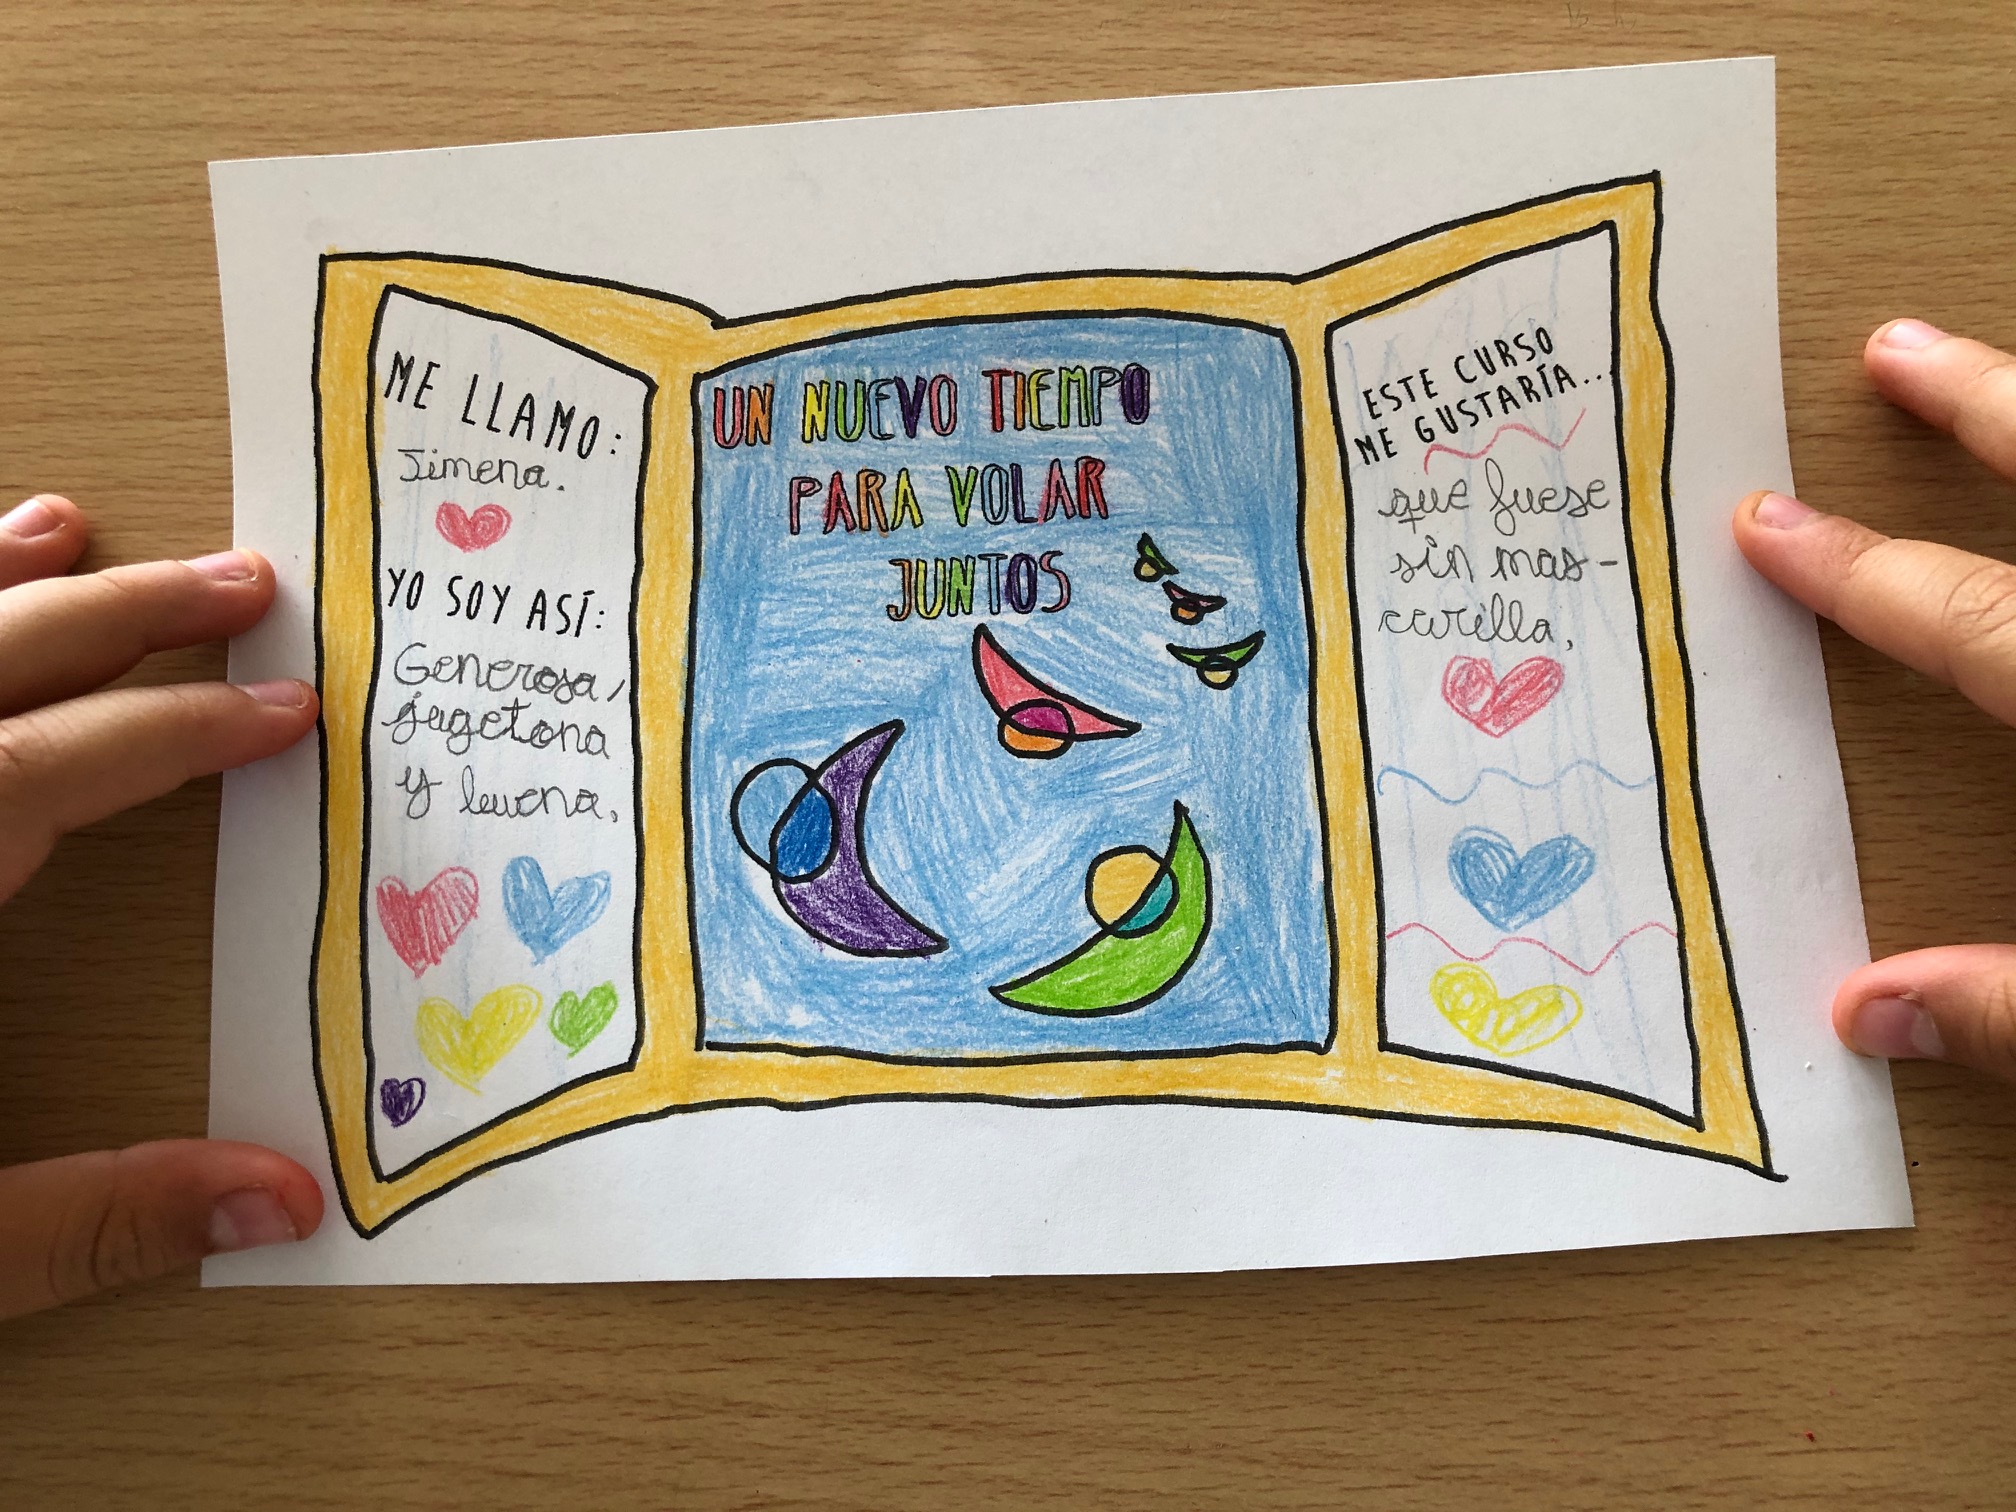 ME LLAMO:
Jimena.
YO SOY ASÍ:
Generosa,
jugetona
y buena.
UN NUEVO TIEMPO
PARA VOLAR
JUNTOS
ESTE CURSO
ME GUSTARÍA...
que fuese
sin mas-
carilla.